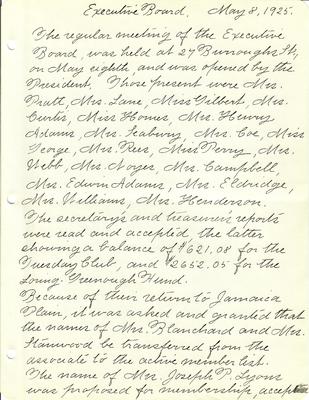 Executive Board. May 8, 1925.
The regular meeting of the Executive
Board, was held at 27 Burroughs St,
on May eighth, and was opened by the
President. Those present were Mrs.
Pratt, Mrs. Lane, Miss Gilbert, Mrs.
Curtis, Miss Homes, Mrs. Henry
Adams, Mrs. Seabury, Mrs. Coe, Miss
George, Mrs. Rees, Miss Perry, Mrs.
Webb, Mrs. Noyes, Mrs. Campbell,
Mrs. Edwin Adams, Mrs. Eldredge,
Mrs. Williams, Mrs. Henderson.
The secretary's and treasurer's reports
were read and accepted, the latter
showing a balance of $621.08 for the
Tuesday Club, and $2652.05 for the
Loring-Greenough Fund.
Because of their return to Jamaica
Plain, it was asked and granted that
the names of Mrs. Blanchard and Mrs.
Stanwood be transferred from the
associate to the active member list.
The name of Mrs. Joseph P. Lyons
was proposed for membership, accept